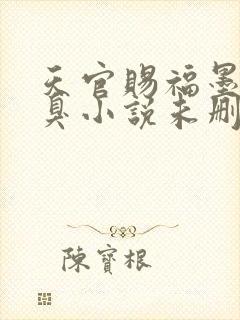 天官賜福墨
臭小說未刪
陳寶根